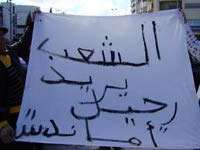 الشعب
يريد
رحيل
أمانديس